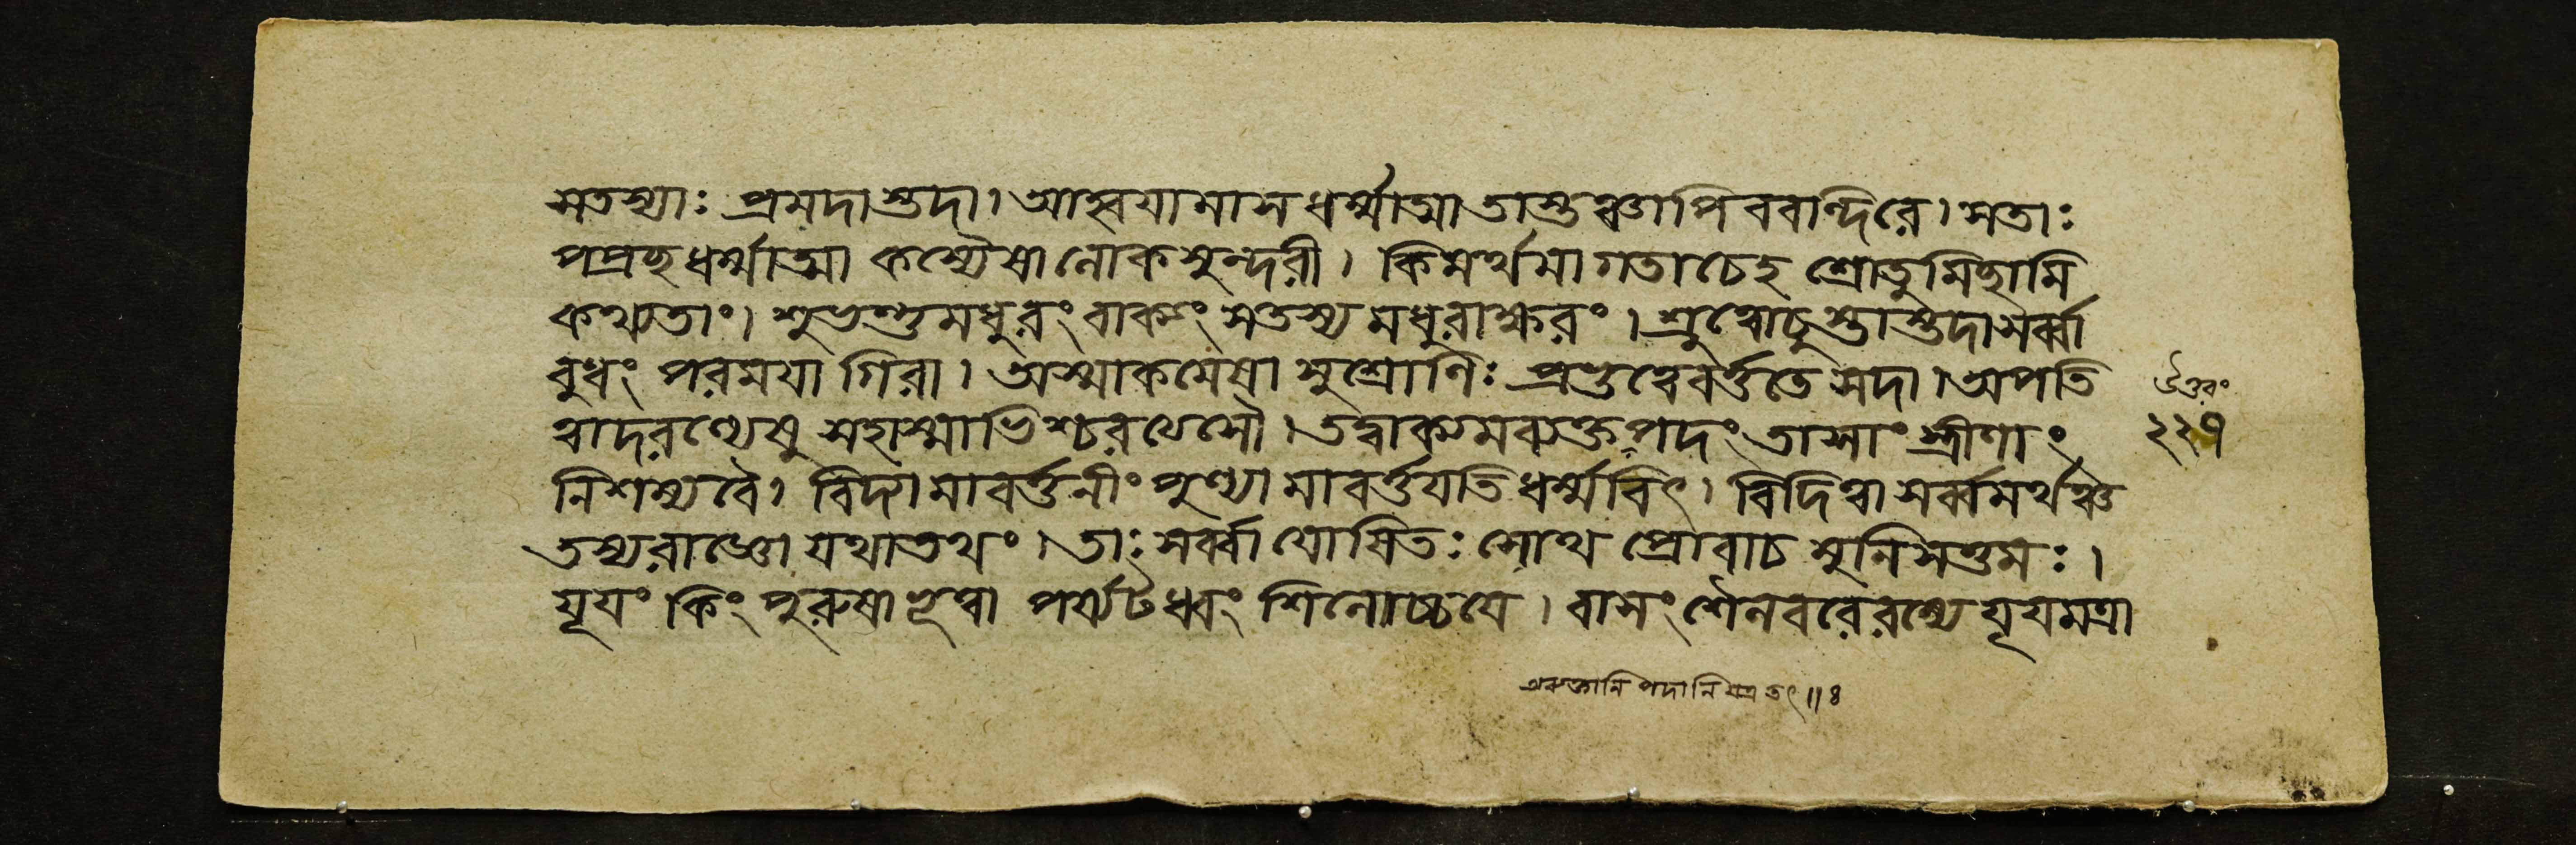 মতস্যাঃ প্রমদাস্তদা। আহ্বযামাস ধর্ম্মাত্মা তাস্তঞ্চাপি ববন্দিরে। সতাঃ
পপ্রচ্ছ ধর্ম্মাত্মা কস্যৈষা লোকসুন্দরী। কিমর্থমাগতা চেহ শ্রোতুমিচ্ছামি
কথ্যতাং। শুভন্তু মধুরং বাক্যং সতস্য মধুরাক্ষরং। শ্রুত্বোচুস্তাস্তদা সর্ব্বা
বুধং পরমযা গিরা। অস্মাকমেষা সুশ্রোণিঃ প্রভুত্বে বর্ত্ততে সদা। অপতি
উত্তরং
ত্বাদরণ্যেষু সহাস্মাভিশ্চরত্যেসৌ। তদ্বাক্যমব্যক্তপদং তাসাং স্ত্রীণাং
২২৭
নিশম্য বৈ। বিদ্যামাবর্ত্তনীং পুণ্যামাবর্ত্তযতি ধর্ম্মবিৎ। বিদিত্বা সর্ব্বমর্থঞ্চ
তস্য রাজ্ঞো যথাতথং। তাঃ সর্ব্বা যোষিতঃ সোথ প্রোবাচ মুনিসত্তমঃ।
যূযং কিংপুরুষা ভূত্বা পর্য্যটধ্বং শিলোচ্চযে। বাসং শৈলবরেরণ্যে যূযমত্রা
অব্যক্তানি পদানি যত্র তৎ॥৪